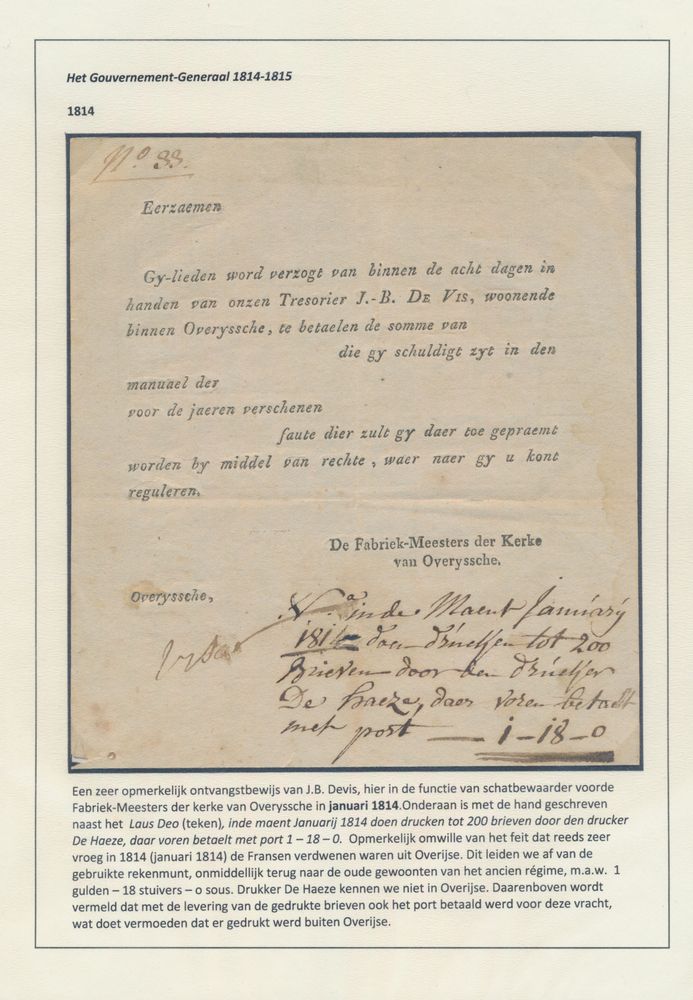 Het Gouvernement-Generaal 1814-1815
1814
Nº 33.
Eerzaemen
Gy-lieden word verzogt van binnen de acht dagen in
handen van onzen Tresorier J.-B. DE VIS, woonende
binnen Overyssche, te betaelen de somme van
die gy schuldigt zyt in den
manuael der
voor de jaeren verschenen
faute dier zult gy daer toe gepraemt
worden by middel van rechte, waer naer gy u kont
reguleren.
De Fabriek-Meesters der Kerke
van Overyssche.
Overyssche,
inde Maent Januarij
1814 doen drucken tot 200
Brieven door den drucker
De haeze, daer voren betaelt
met port — 1-18-0
Een zeer opmerkelijk ontvangstbewijs van J.B. Devis, hier in de functie van schatbewaarder voorde
Fabriek-Meesters der kerke van Overyssche in januari 1814.Onderaan is met de hand geschreven
naast het Laus Deo (teken), inde maent Januarij 1814 doen drucken tot 200 brieven door den drucker
De Haeze, daar voren betaelt met port 1 – 18 – 0. Opmerkelijk omwille van het feit dat reeds zeer
vroeg in 1814 (januari 1814) de Fransen verdwenen waren uit Overijse. Dit leiden we af van de
gebruikte rekenmunt, onmiddellijk terug naar de oude gewoonten van het ancien régime, m.a.w. 1
gulden – 18 stuivers – o sous. Drukker De Haeze kennen we niet in Overijse. Daarenboven wordt
vermeld dat met de levering van de gedrukte brieven ook het port betaald werd voor deze vracht,
wat doet vermoeden dat er gedrukt werd buiten Overijse.